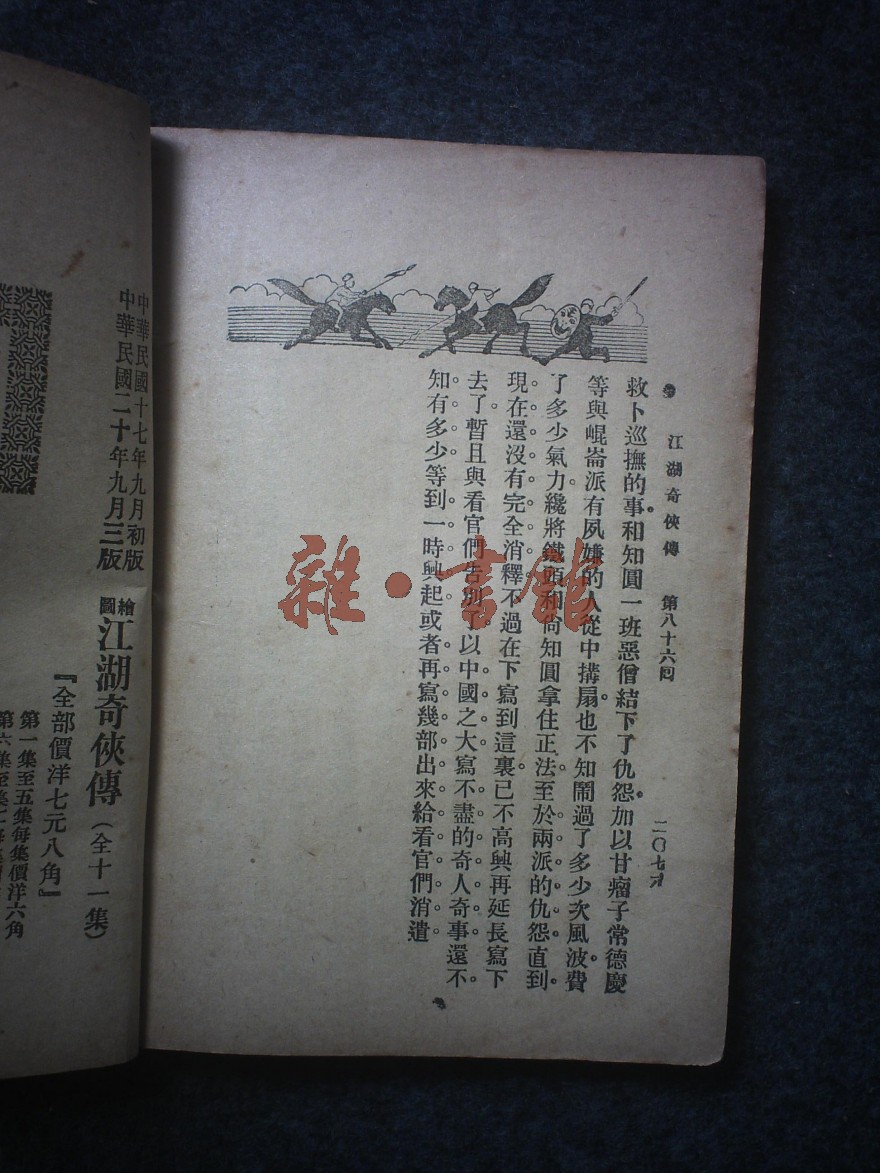 江湖奇俠傳　第八十六回　二〇七六
救卜巡撫的事和知圓一班惡僧結下了仇怨加以甘瘤子常德慶
等與崐崙派有夙嫌的人從中搆扇也不知鬧過了多少次風波費
了多少氣力纔將鐵頭和尚知圓拿住正法至於兩派的仇怨直到
現在還沒有完全消釋不過在下寫到這裏已不高興再延長寫下
去了暫且與看官們告別了以中國之大寫不盡的奇人奇事還不
知有多少等到一時興起或者再寫幾部出來給看官們消遣
中華民國十七年九月初版
中華民國二十年九月三版
繪圖江湖奇俠傳（全十一集）
『全部價洋七元八角』
第一集至五集每集價洋六角
雜·書館